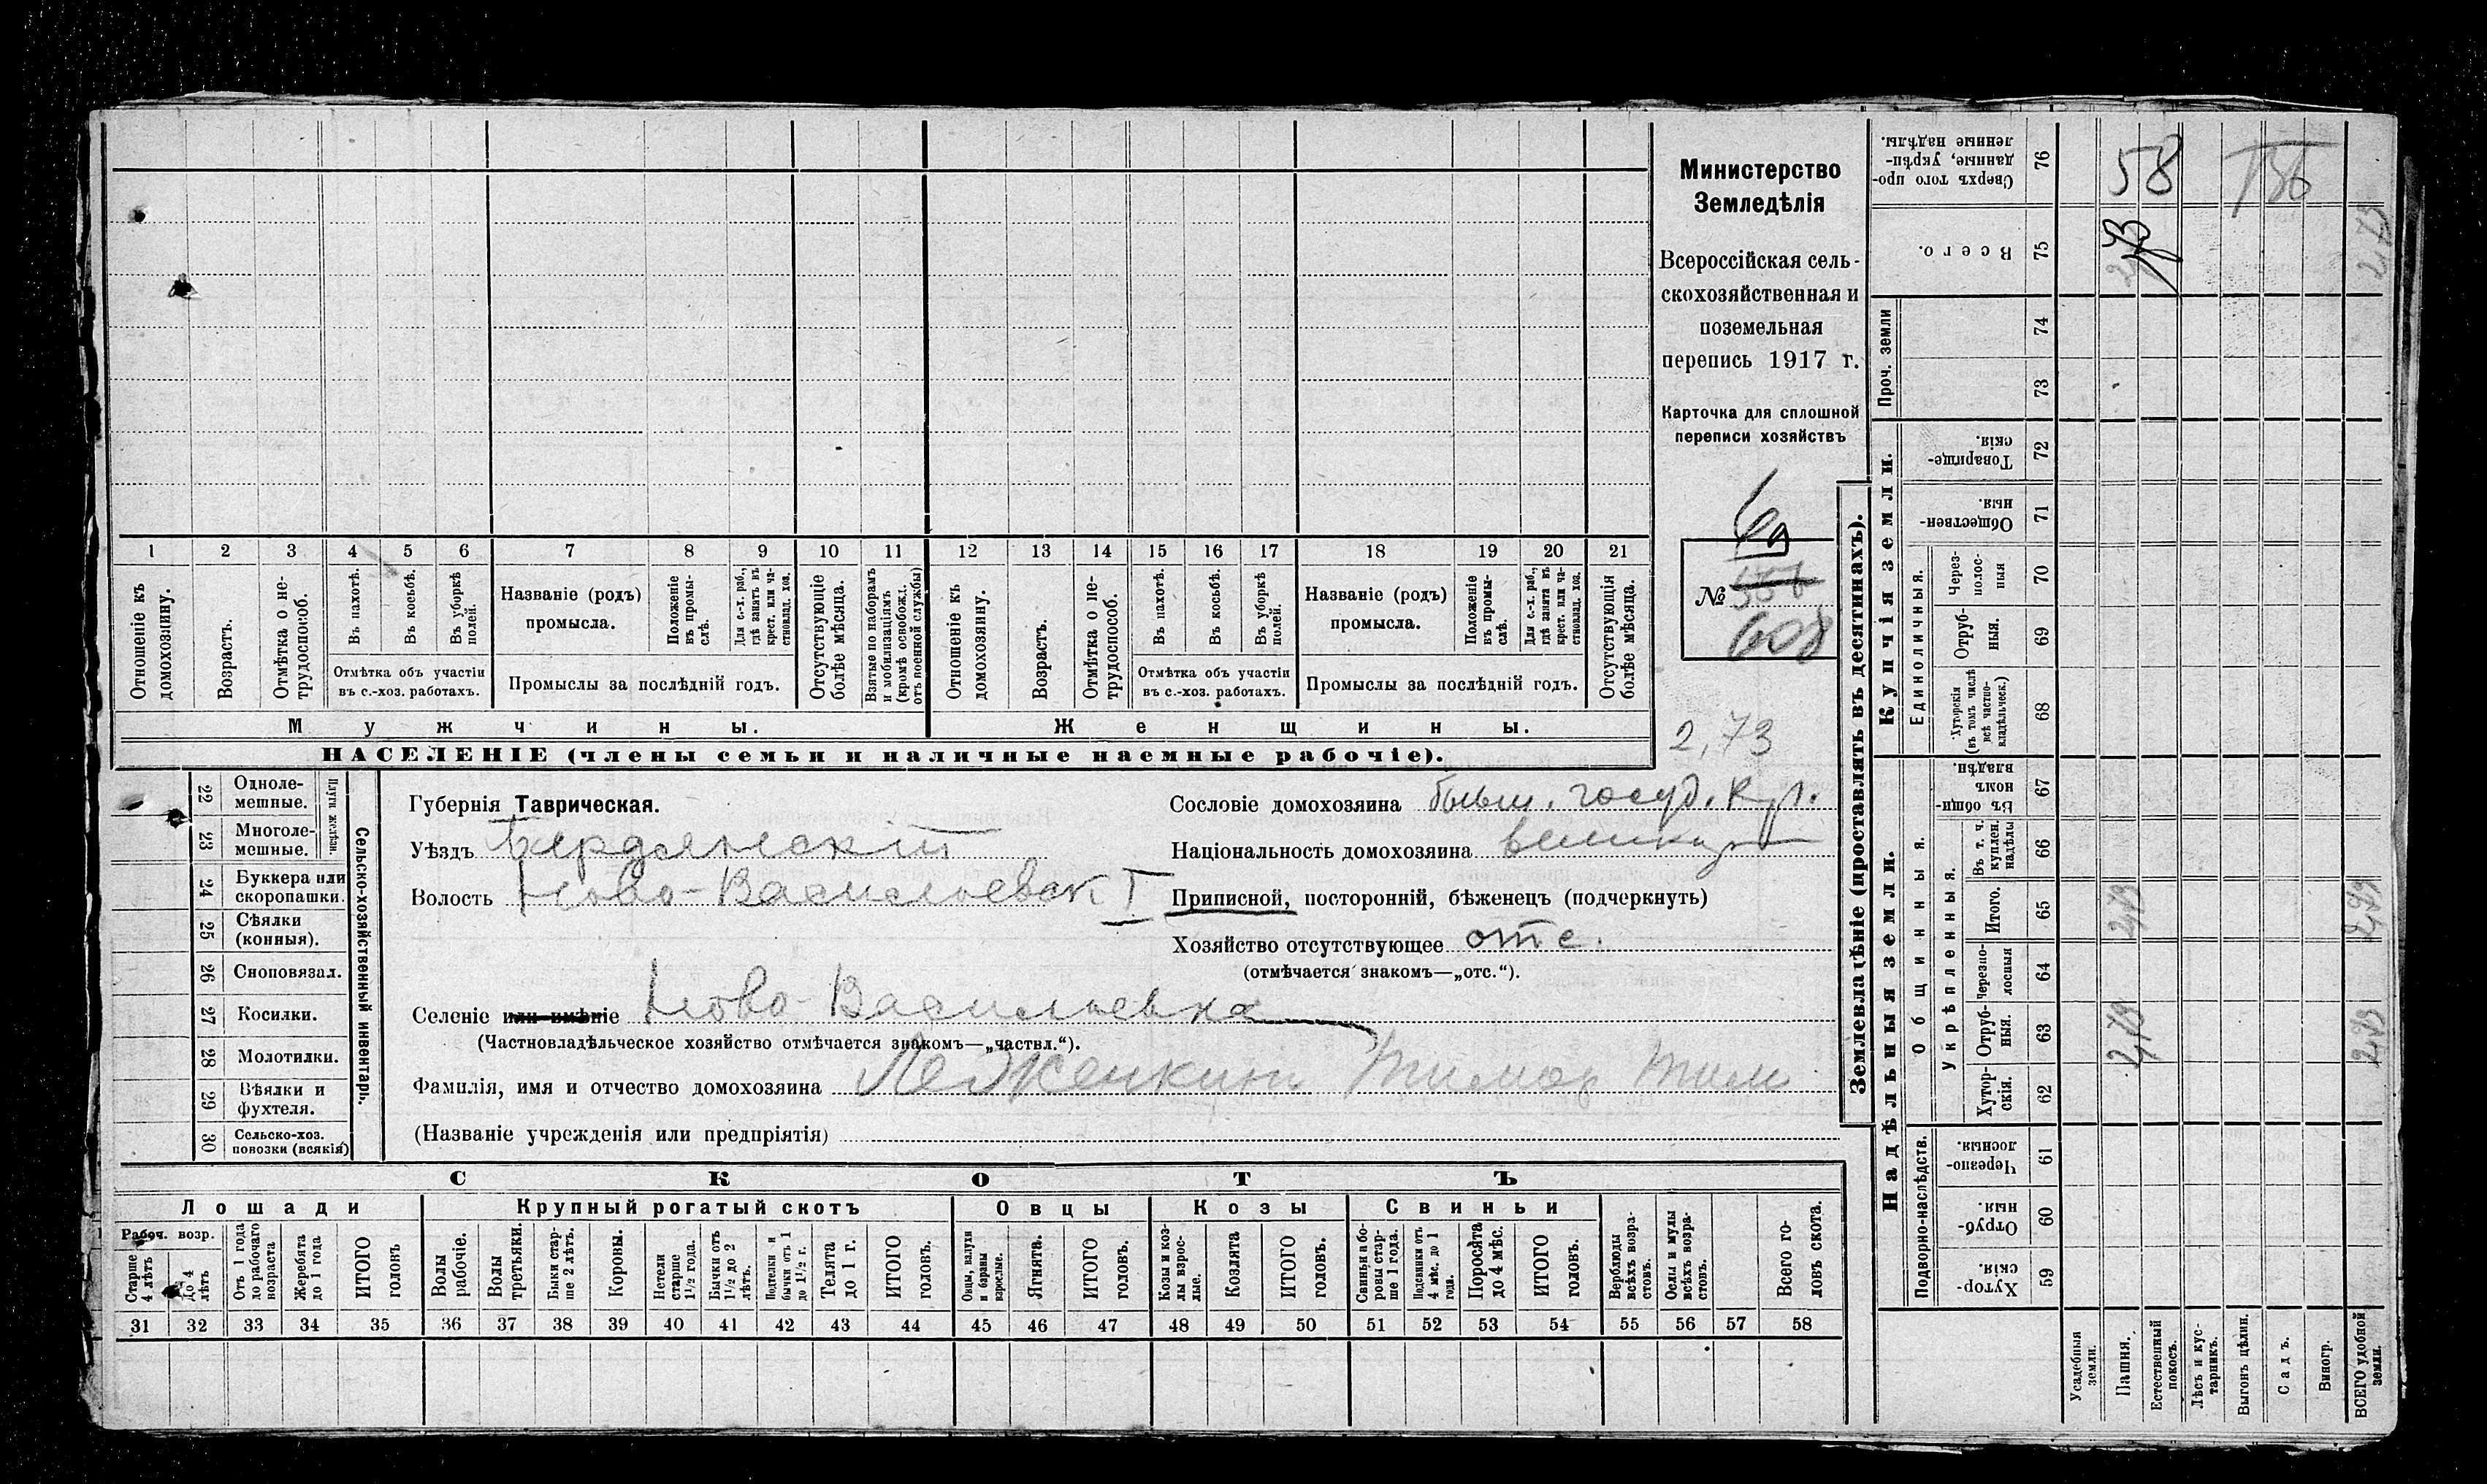 Министерство
Земледѣлія
Всероссійская сель-
скохозяйственная и
поземельная
перепись 1917 г.
Карточка для сплошной
переписи хозяйствъ
№ 608
2,73
1 2 3 4 5 6 7 8 9 10 11 12 13 14 15 16 17 18 19 20 21
Отношеніе къ домохозяину.
Возрастъ.
Отмѣтка о не-трудоспособ.
Въ пахотѣ.
Въ косьбѣ.
Въ уборкѣ полей.
Отмѣтка объ участіи
въ с.-хоз. работахъ.
Названіе (родъ)
промысла.
Положеніе въ промы-слѣ.
Для с.-х. раб., гдѣ занатъ въ крест. или ча-стновлад. хоз.
Промыслы за послѣдній годъ.
Отсутствующіе болѣе мѣсяца.
Взятые по наборамъ и мобилизаціямъ (кромѣ освобожд. отъ военной службы)
Отношеніе къ домохозяину.
Возрастъ.
Отмѣтка о не-трудоспособ.
Въ пахотѣ.
Въ косьбѣ.
Въ уборкѣ полей.
Отмѣтка объ участіи
въ с.-хоз. работахъ.
Названіе (родъ)
промысла.
Положеніе въ промы-слѣ.
Для с.-х. раб., гдѣ заната въ крест. или ча-стновлад. хоз.
Промыслы за послѣдній годъ.
Отсутствующія болѣе мѣсяца.
Мужчины.
Женщины.
НАСЕЛЕНІЕ (члены семьи и наличные наемные рабочіе).
Сельско-хозяйственный инвентарь.
Плуги желѣзн.
22 Одноле-мешные.
23 Многоле-мешные.
24 Буккера или скоропашки.
25 Сѣялки (конныя).
26 Сноповязал.
27 Косилки.
28 Молотилки.
29 Вѣялки и фухтеля.
30 Сельско-хоз. повозки (всякія)
Губернія Таврическая.
Уѣздъ Бердянскій
Волость Ново-Васильевск I
Сословіе домохозяина бывш. госуд. кр.
Національность домохозяина великор
Приписной, посторонній, бѣженецъ (подчеркнуть)
Хозяйство отсутствующее отс.
(отмѣчается знакомъ—„отс.“).
Селеніе или имѣніе Ново-Васильевка
(Частновладѣльческое хозяйство отмѣчается знакомъ—„частвл.“).
Фамилія, имя и отчество домохозяина Леженкин Тимоф Тим
(Названіе учрежденія или предпріятія)
СКОТЪ
Лошади
Крупный рогатый скотъ
Овцы
Козы
Свиньи
Рабоч. возр.
Старше 4 лѣтъ
До 4 лѣтъ
Отъ 1 года до рабочаго возраста
Жеребята до 1 года
ИТОГО головъ
Волы рабочіе.
Волы третьяки.
Быки стар-ше 2 лѣтъ.
Коровы.
Нетели старше 1½ года.
Бычки отъ 1½ до 2 лѣтъ.
Подтелки и бычки отъ 1 до 1½ г.
Телята до 1 г.
ИТОГО головъ.
Овцы, валухи и бараны взрослые.
Ягнята.
ИТОГО головъ.
Козы и коз-лы взрос-лые.
Козлята
ИТОГО головъ.
Свиньи и бо-ровы стар-ше 1 года.
Подсвинки отъ 4 мѣс. до 1 года.
Поросята до 4 мѣс.
ИТОГО головъ.
Верблюды всѣхъ возра-стовъ.
Ослы и мулы всѣхъ возра-стовъ.
Всего го-ловъ скота.
31 32 33 34 35 36 37 38 39 40 41 42 43 44 45 46 47 48 49 50 51 52 53 54 55 56 57 58
Землевладѣніе (проставлять въ десятинахъ).
Купчія земли.
Надѣльныя земли.
Сверхъ того про-данные, укрѣп-ленные надѣлы. 76 58
Всего. 75
2,73
Проч. земли 74 73
Товарище-скія. 72
Обществен-ныя. 71
Единоличныя.
Через-полос-ныя 70
Отруб-ныя. 69
Хуторскія (въ томъ числѣ всѣ частно-владѣльческ.) 68
Общинныя.
Въ общин-номъ владѣн. 67
Укрѣпленныя.
Въ т. ч. куплен. надѣлы 66
Итого. 65 2,73 2,73
Черезпо-лосныя 64
Отруб-ныя. 63 2,73 2,73
Хутор-скія. 62
Подворно-наслѣдств.
Черезпо-лосныя. 61
Отруб-ныя. 60
Хутор-скія. 59
Усадебныя земли.
Пашня.
Естественный покосъ.
Лѣсъ и кус-тарникъ.
Выгонъ цѣлин.
Садъ.
Виногр.
ВСЕГО удобной земли.